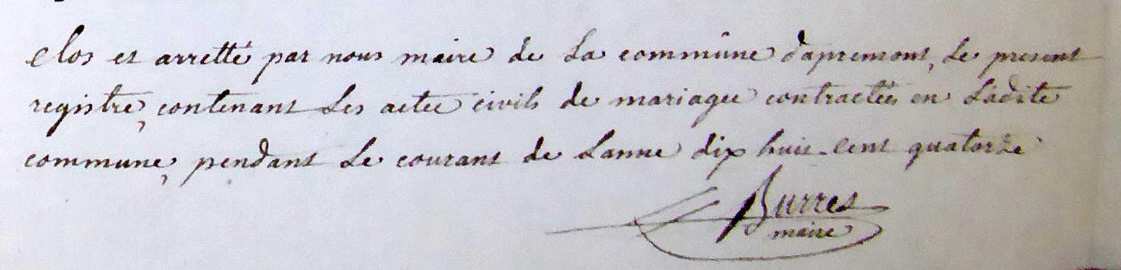 clos et arretté par nous maire de la commune d'apremont, le present
registre, contenant les actes civils de mariages contractés en ladite
commune, pendant le courant de lanne dix huit-cent quatorze
Burres
maire